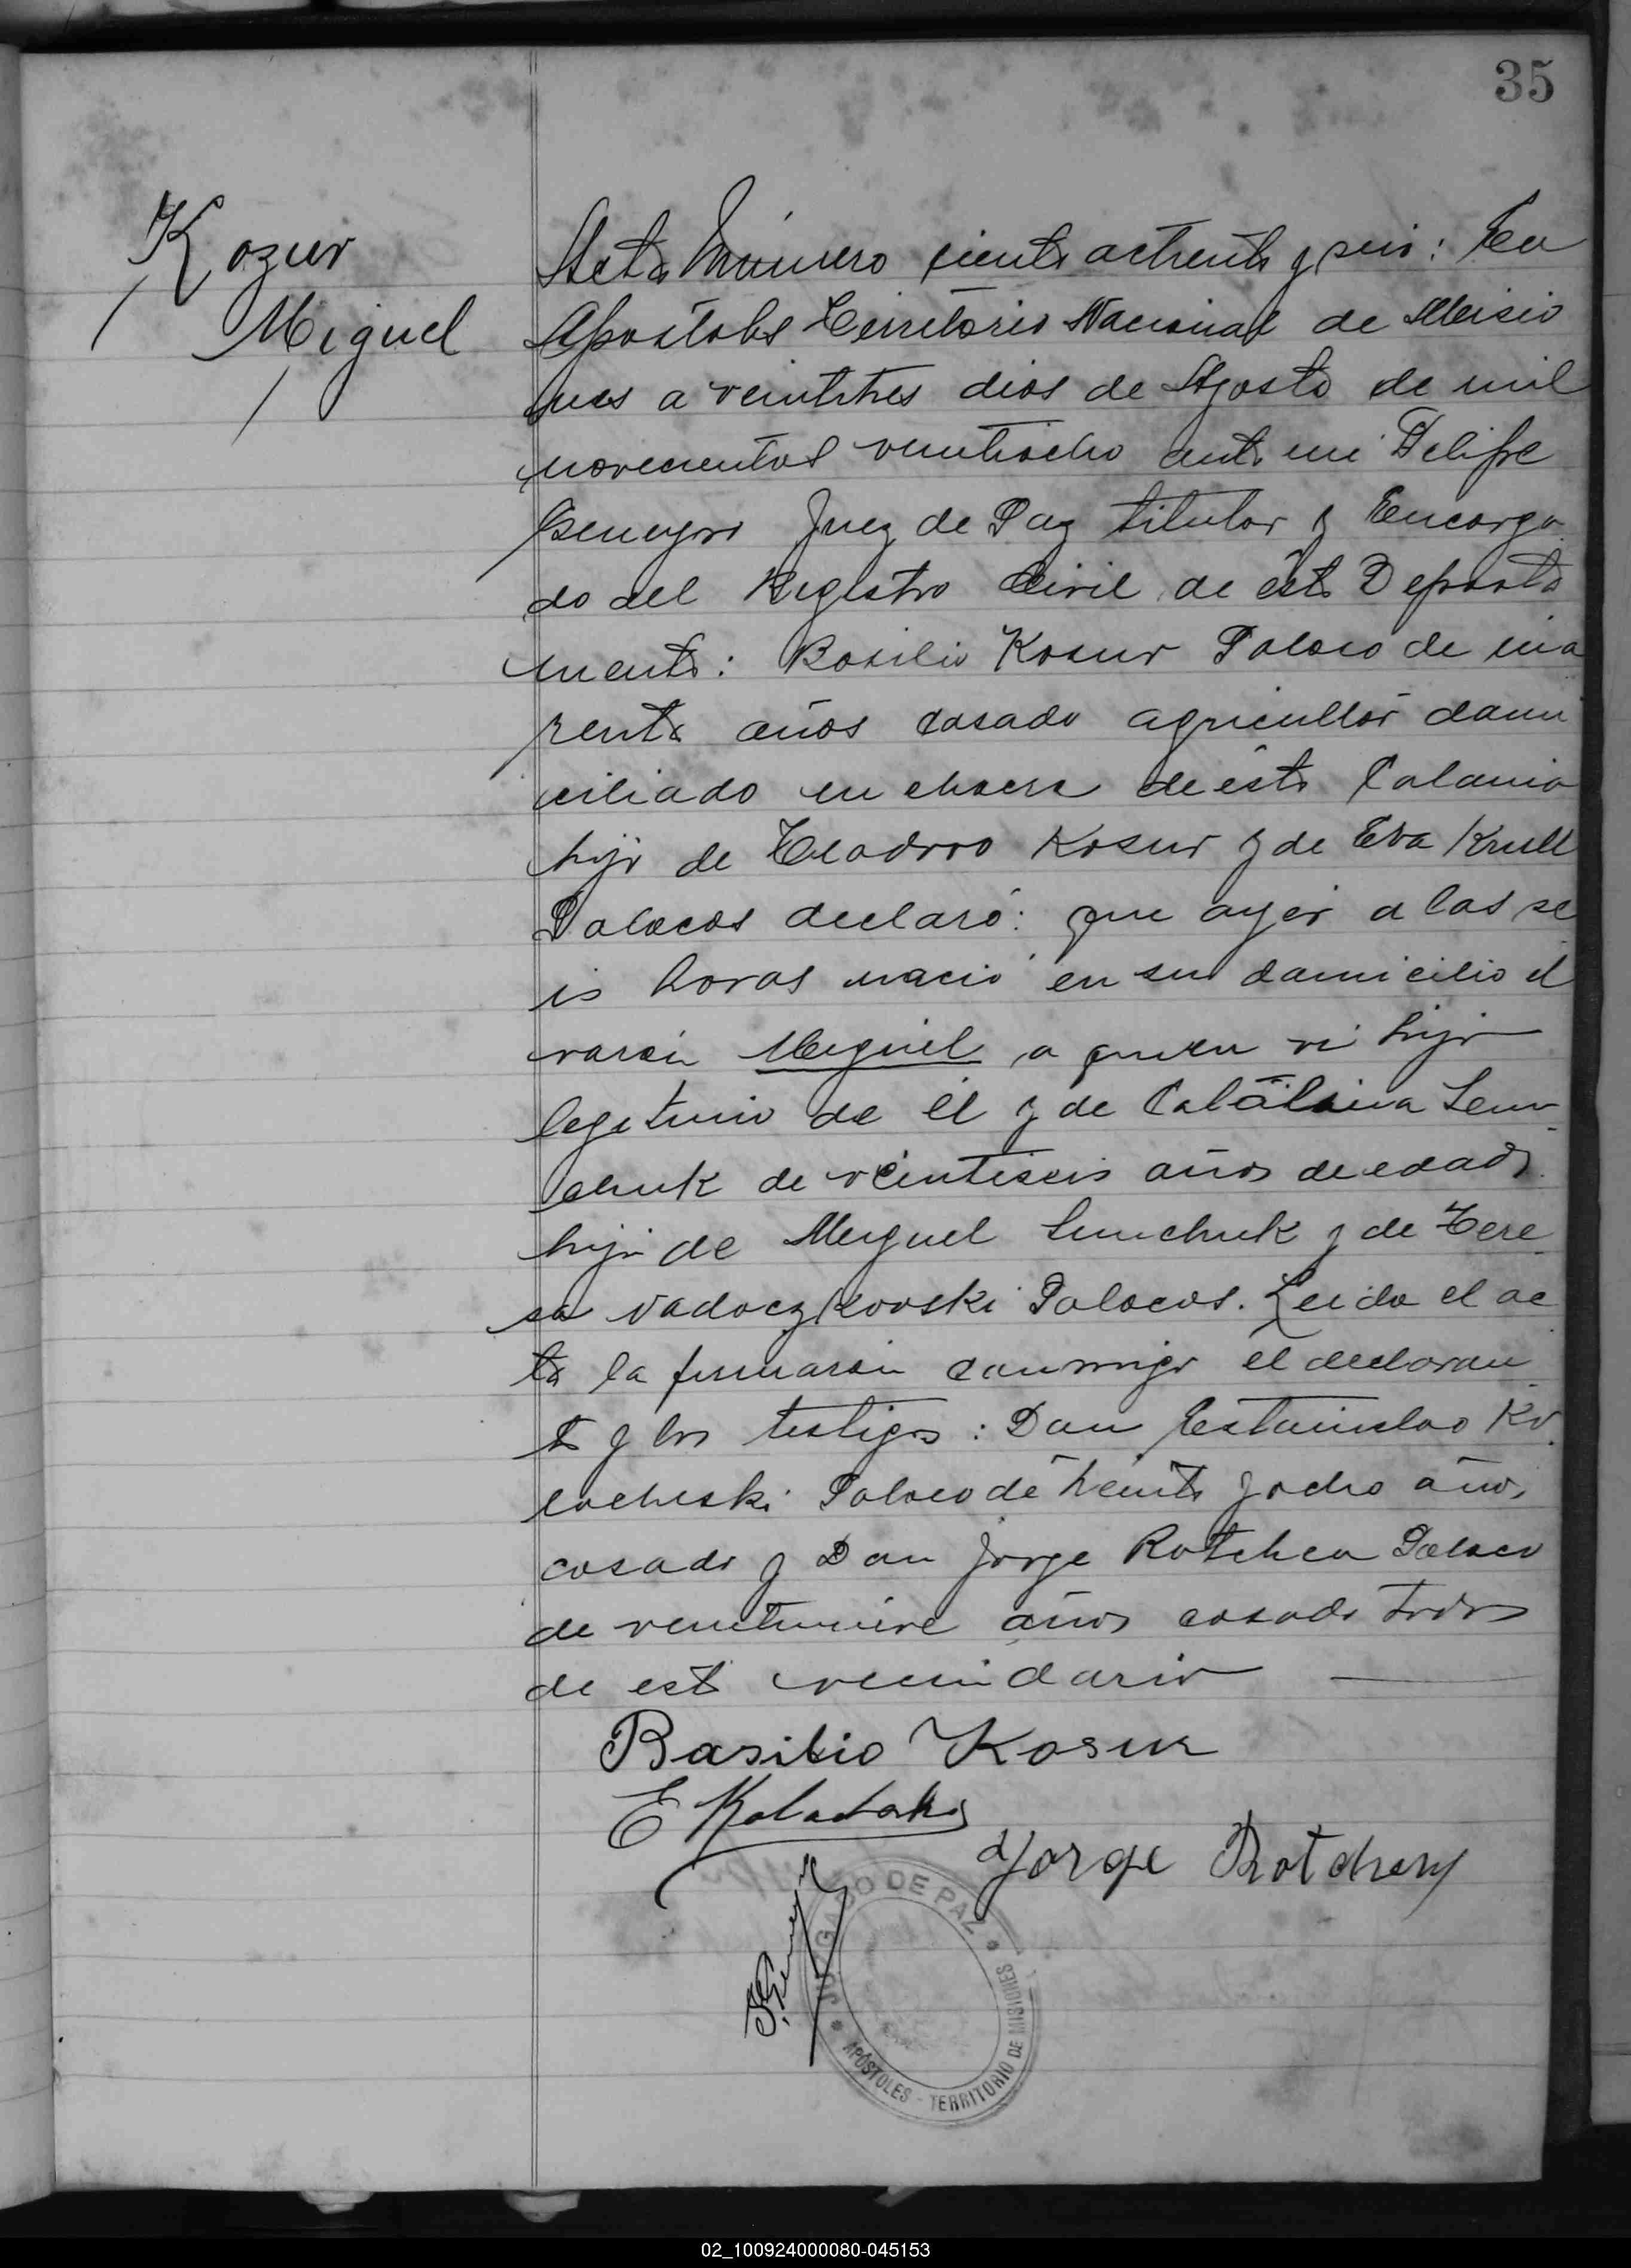 35
Kozur
Miguel
Acta Número ciento ochenta y seis: En
Apostoles Territorio Nacional de Misio
nes a veintitres dias de Agosto de mil
novecientos veintiocho ante mi Felipe
Juez de Paz titular y Encarga
do del Registro Civil de este Departa
mento: Basilio Kosur Polaco de cua
renta años casado agricultor domi
ciliado en chacra de ésta Colonia
hijo de Teodoro Kosur y de Eva Krull
Polacos declaró: que ayer a las se
is horas nació en su domicilio el
varón Miguel a quien vi hijo
legitimo de él y de Catalina Sem
chuk de veintiseis años de edad
hija de Miguel Semchuk y de Tere
sa Polacos. Leida el ac
ta la firmaron conmigo el declaran
te y los testigos: Don Estanislao Ko
Polaco de treinta y ocho años
casado y Don Jorge Rotchen Polaco
de veintinueve años casado todos
de este vecindario
Basilio Kosur
E
Jorge Rotcheny
JUZGADO DE PAZ
APÓSTOLES - TERRITORIO DE MISIONES
02_100924000080-045153